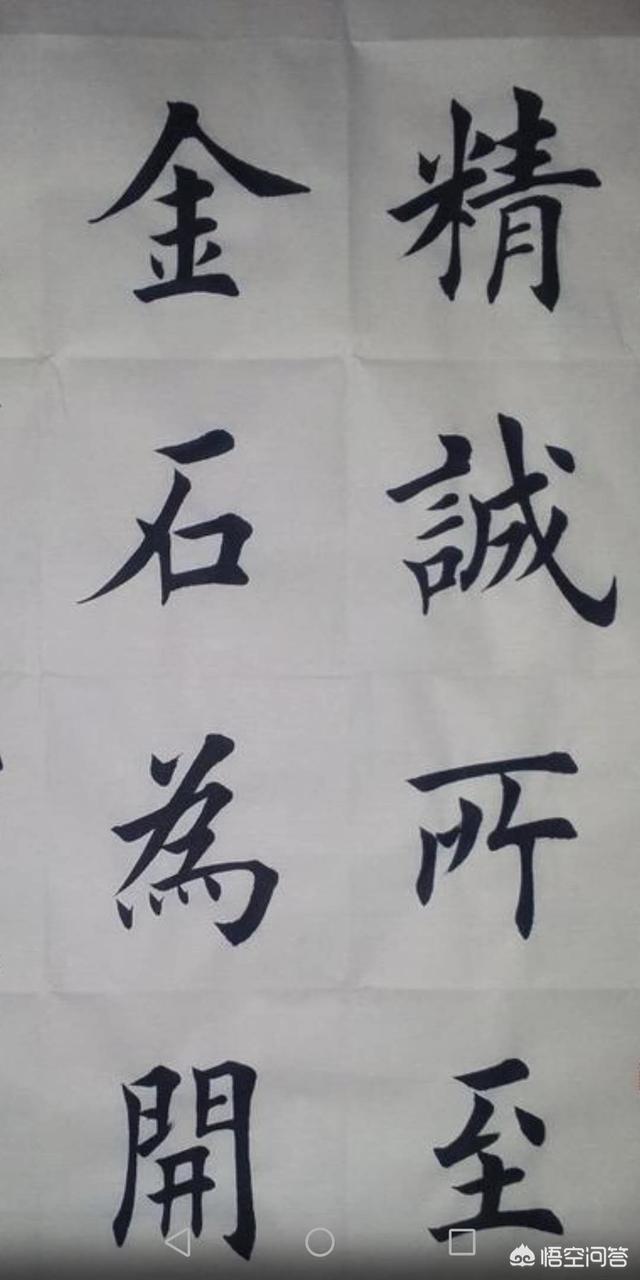 精誠所至
金石為開
悟空问答